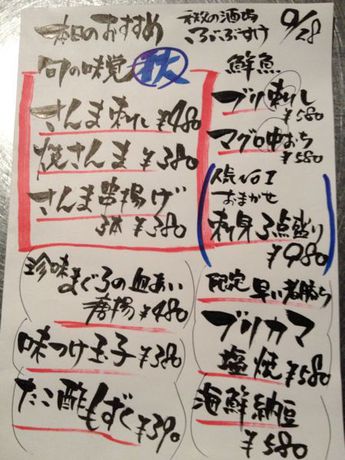 本日のおすすめ
9/28
旬の味覚 秋
さんま刺し ¥480
焼さんま ¥380
さんま串揚げ
3本 ¥380
鮮魚
ブリ刺し
¥580
マグロ中おち
¥580
人気No1
おまかせ
刺身3点盛り
¥980
珍味
まぐろの血あい
唐揚 ¥480
味つけ玉子 ¥380
たこ酢もずく ¥390
限定 早い者勝ち
ブリカマ
塩焼 ¥580
海鮮納豆
¥580